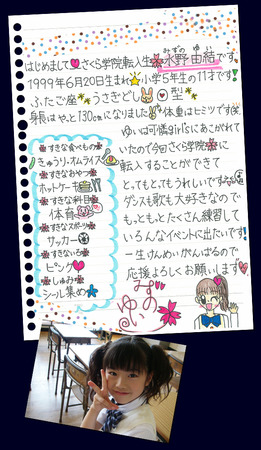 はじめまして♥さくら学院転入生★水野由結です。
みずの ゆい
1999年6月20日生まれ★小学5年生の11才です!
ふたご座★うさぎどし 型
身長はやっと130cmになりました 体重はヒミツです
ゆいは可憐girl'sにあこがれて
いたので今回さくら学院に
転入することができて
とってもとってもうれしいです
ダンスも歌も大好きなので
もっともっとたくさん練習して
いろんなイベントに出たいです!
一生けんめいがんばるので
応援よろしくお願いします
すきな食べもの
きゅうり・オムライス
すきなおやつ
ホットケーキ
すきな科目
体育
すきなスポーツ
サッカー
すきないろ
ピンク
しゅみ
シール集め
みずの
ゆい